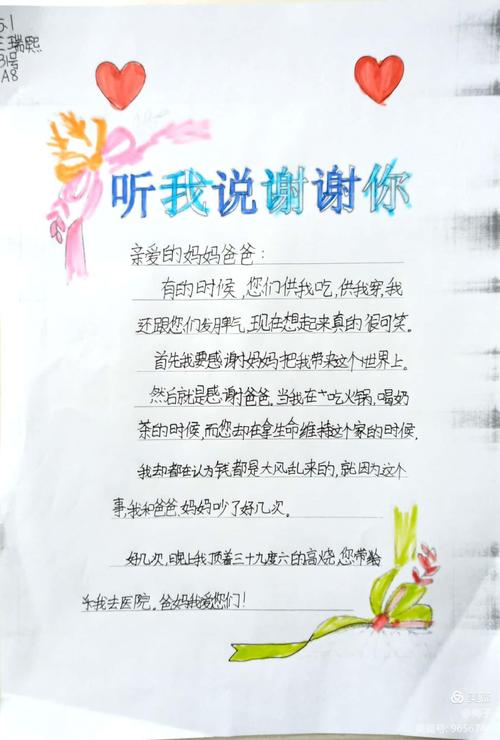 5.1
王瑞熙
31号
A8
听我说谢谢你
亲爱的妈妈爸爸：
有的时候，您们供我吃，供我穿，我
还跟您们发脾气，现在想起来真的很可笑。
首先我要感谢妈妈把我带来这个世界上。
然后就是感谢爸爸。当我在吃火锅，喝奶
茶的时候，而您却在拿生命维持这个家的时候，
我却都在认为钱都是大风乱来的，就因为这个
事，我和爸爸、妈妈吵了好几次。
好几次，晚上我顶着三十九度六的高烧，您带
我去医院。爸妈我爱您们！
美篇